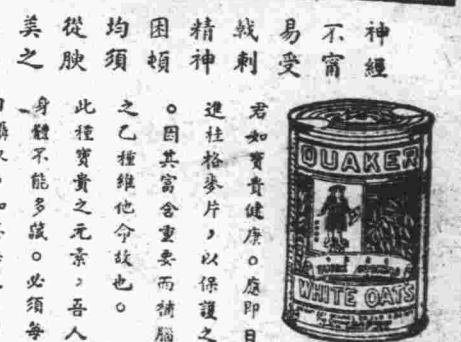 神經
不甯
易受
戟刺
精神
困頓
均須
從腴
美之
君如寶貴健康。應即日
進桂格麥片，以保護之
。因其富含重要而補腦
之乙種維他命故也。
此種寶貴之元素，吾人
身體不能多藏。必須每
QUAKER
WHITE OATS